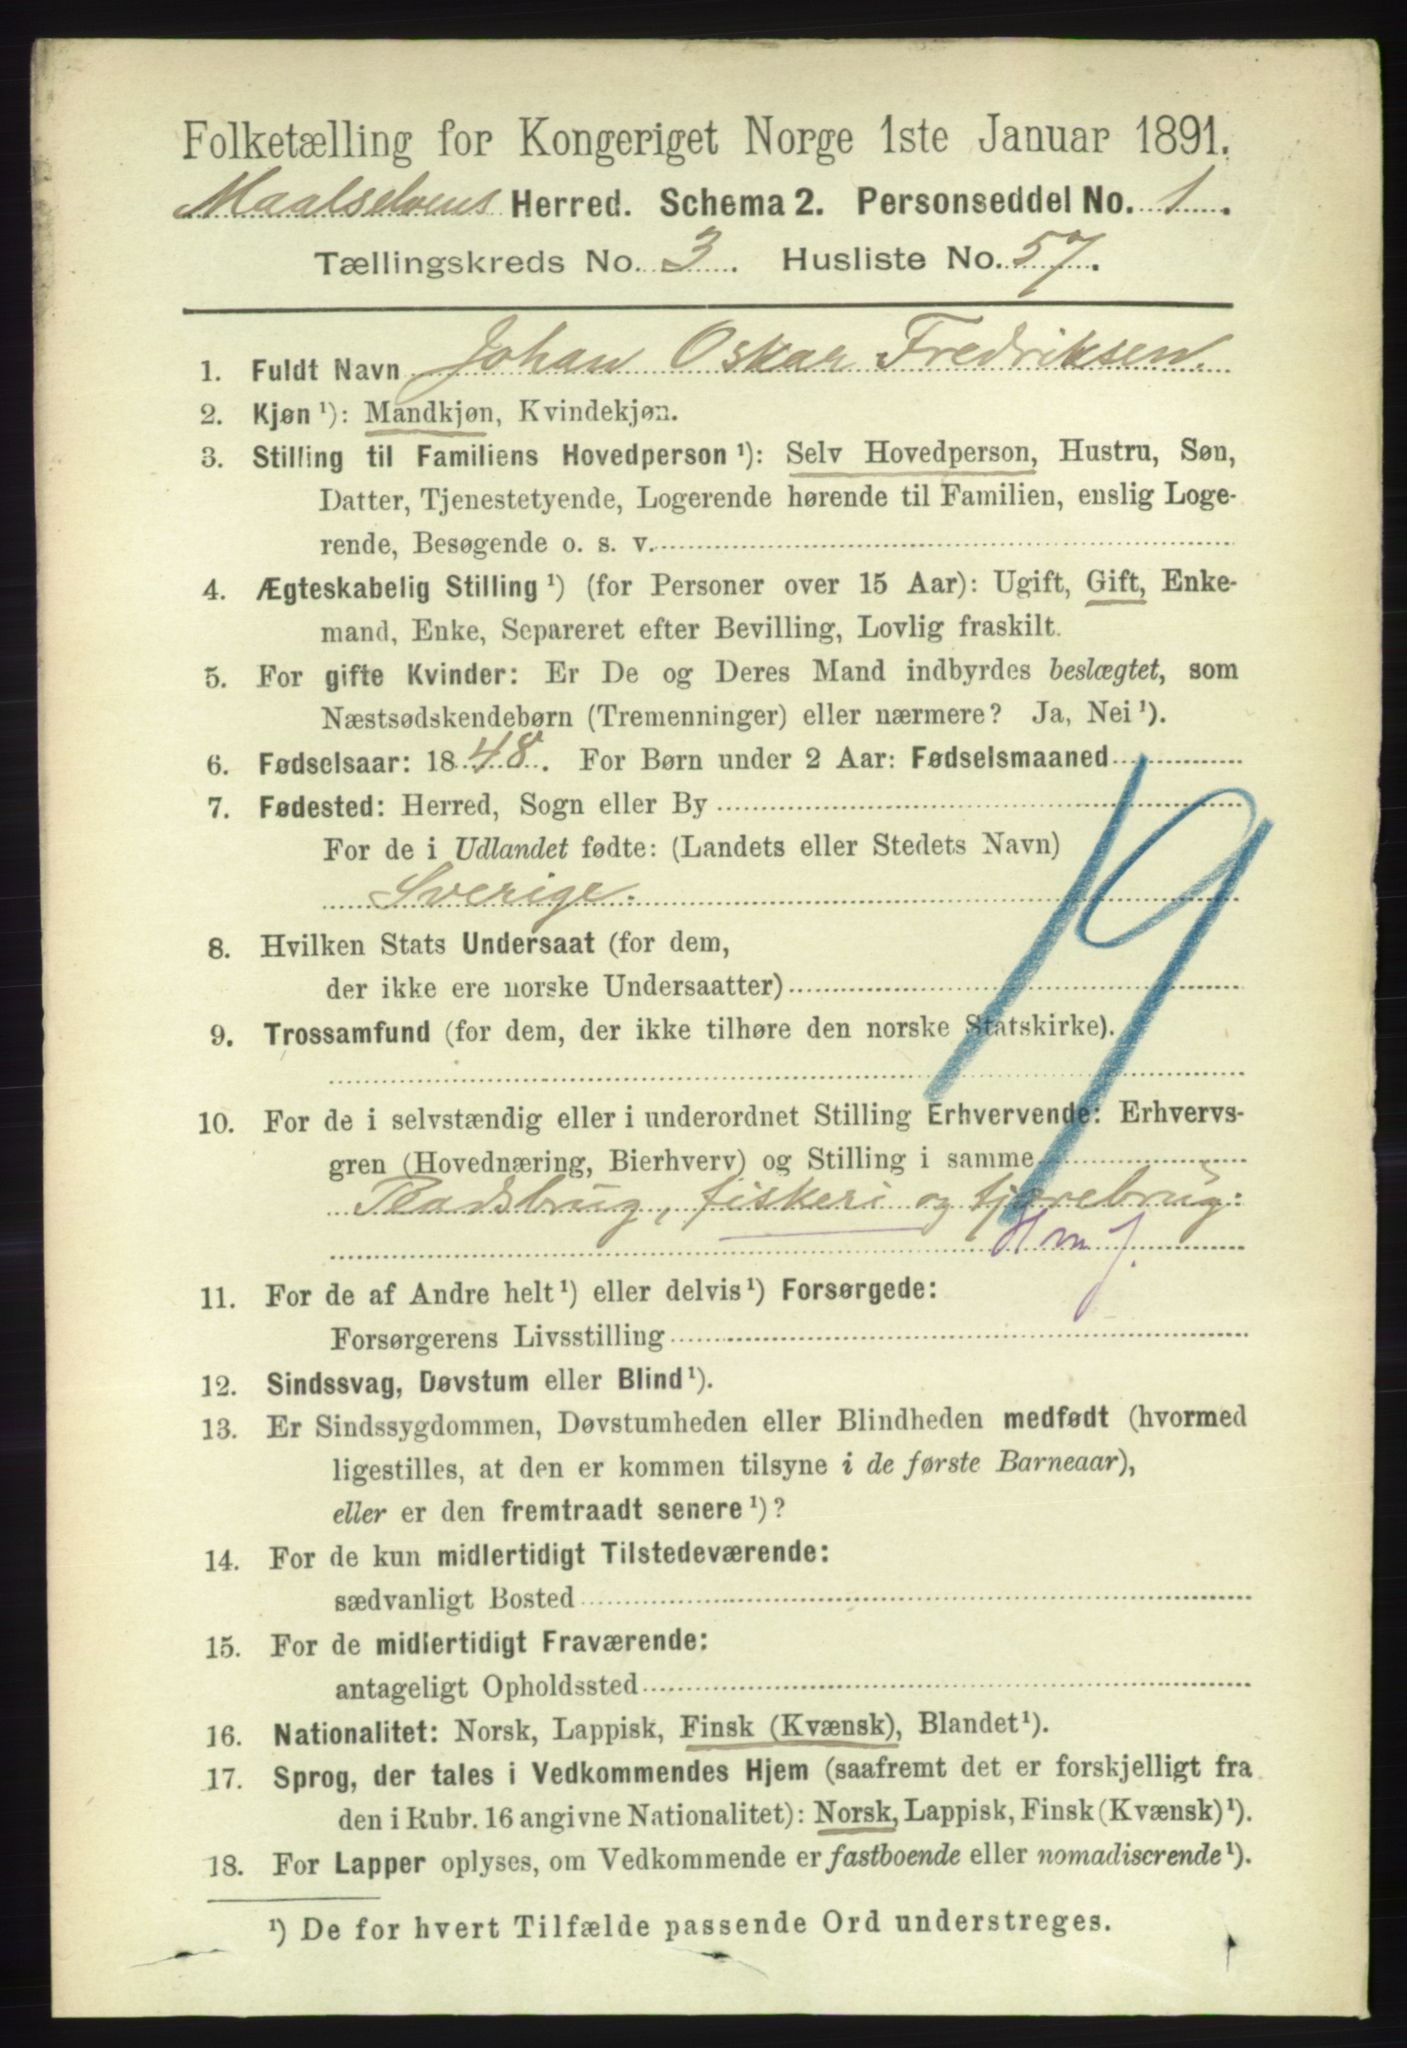 Folketælling for Kongeriget Norge 1ste Januar 1891.
Maalselvens Herred. Schema 2. Personseddel No. 1.
Tællingskreds No. 3. Husliste No. 57.
1. Fuldt Navn Johan Oskar Fredriksen.
2. Kjøn ¹): Mandkjøn, Kvindekjøn.
3. Stilling til Familiens Hovedperson ¹): Selv Hovedperson, Hustru, Søn,
Datter, Tjenestetyende, Logerende hørende til Familien, enslig Loge-
rende, Besøgende o. s. v.
4. Ægteskabelig Stilling ¹) (for Personer over 15 Aar): Ugift, Gift, Enke-
mand, Enke, Separeret efter Bevilling, Lovlig fraskilt.
5. For gifte Kvinder: Er De og Deres Mand indbyrdes beslægtet, som
Næstsødskendebørn (Tremenninger) eller nærmere? Ja, Nei ¹).
6. Fødselsaar: 1848. For Børn under 2 Aar: Fødselsmaaned
7. Fødested: Herred, Sogn eller By
For de i Udlandet fødte: (Landets eller Stedets Navn)
Sverige.
19
8. Hvilken Stats Undersaat (for dem,
der ikke ere norske Undersaatter)
9. Trossamfund (for dem, der ikke tilhøre den norske Statskirke).
10. For de i selvstændig eller i underordnet Stilling Erhvervende: Erhvervs-
gren (Hovednæring, Bierhverv) og Stilling i samme
fiskeri og tjærebrug:
11. For de af Andre helt ¹) eller delvis ¹) Forsørgede:
Forsørgerens Livsstilling
12. Sindssvag, Døvstum eller Blind ¹).
13. Er Sindssygdommen, Døvstumheden eller Blindheden medfødt (hvormed
ligestilles, at den er kommen tilsyne i de første Barneaar),
eller er den fremtraadt senere ¹)?
14. For de kun midlertidigt Tilstedeværende:
sædvanligt Bosted
15. For de midlertidigt Fraværende:
antageligt Opholdssted
16. Nationalitet: Norsk, Lappisk, Finsk (Kvænsk), Blandet ¹).
17. Sprog, der tales i Vedkommendes Hjem (saafremt det er forskjelligt fra
den i Rubr. 16 angivne Nationalitet): Norsk, Lappisk, Finsk (Kvænsk) ¹).
18. For Lapper oplyses, om Vedkommende er fastboende eller nomadiscrende ¹).
¹) De for hvert Tilfælde passende Ord understreges.